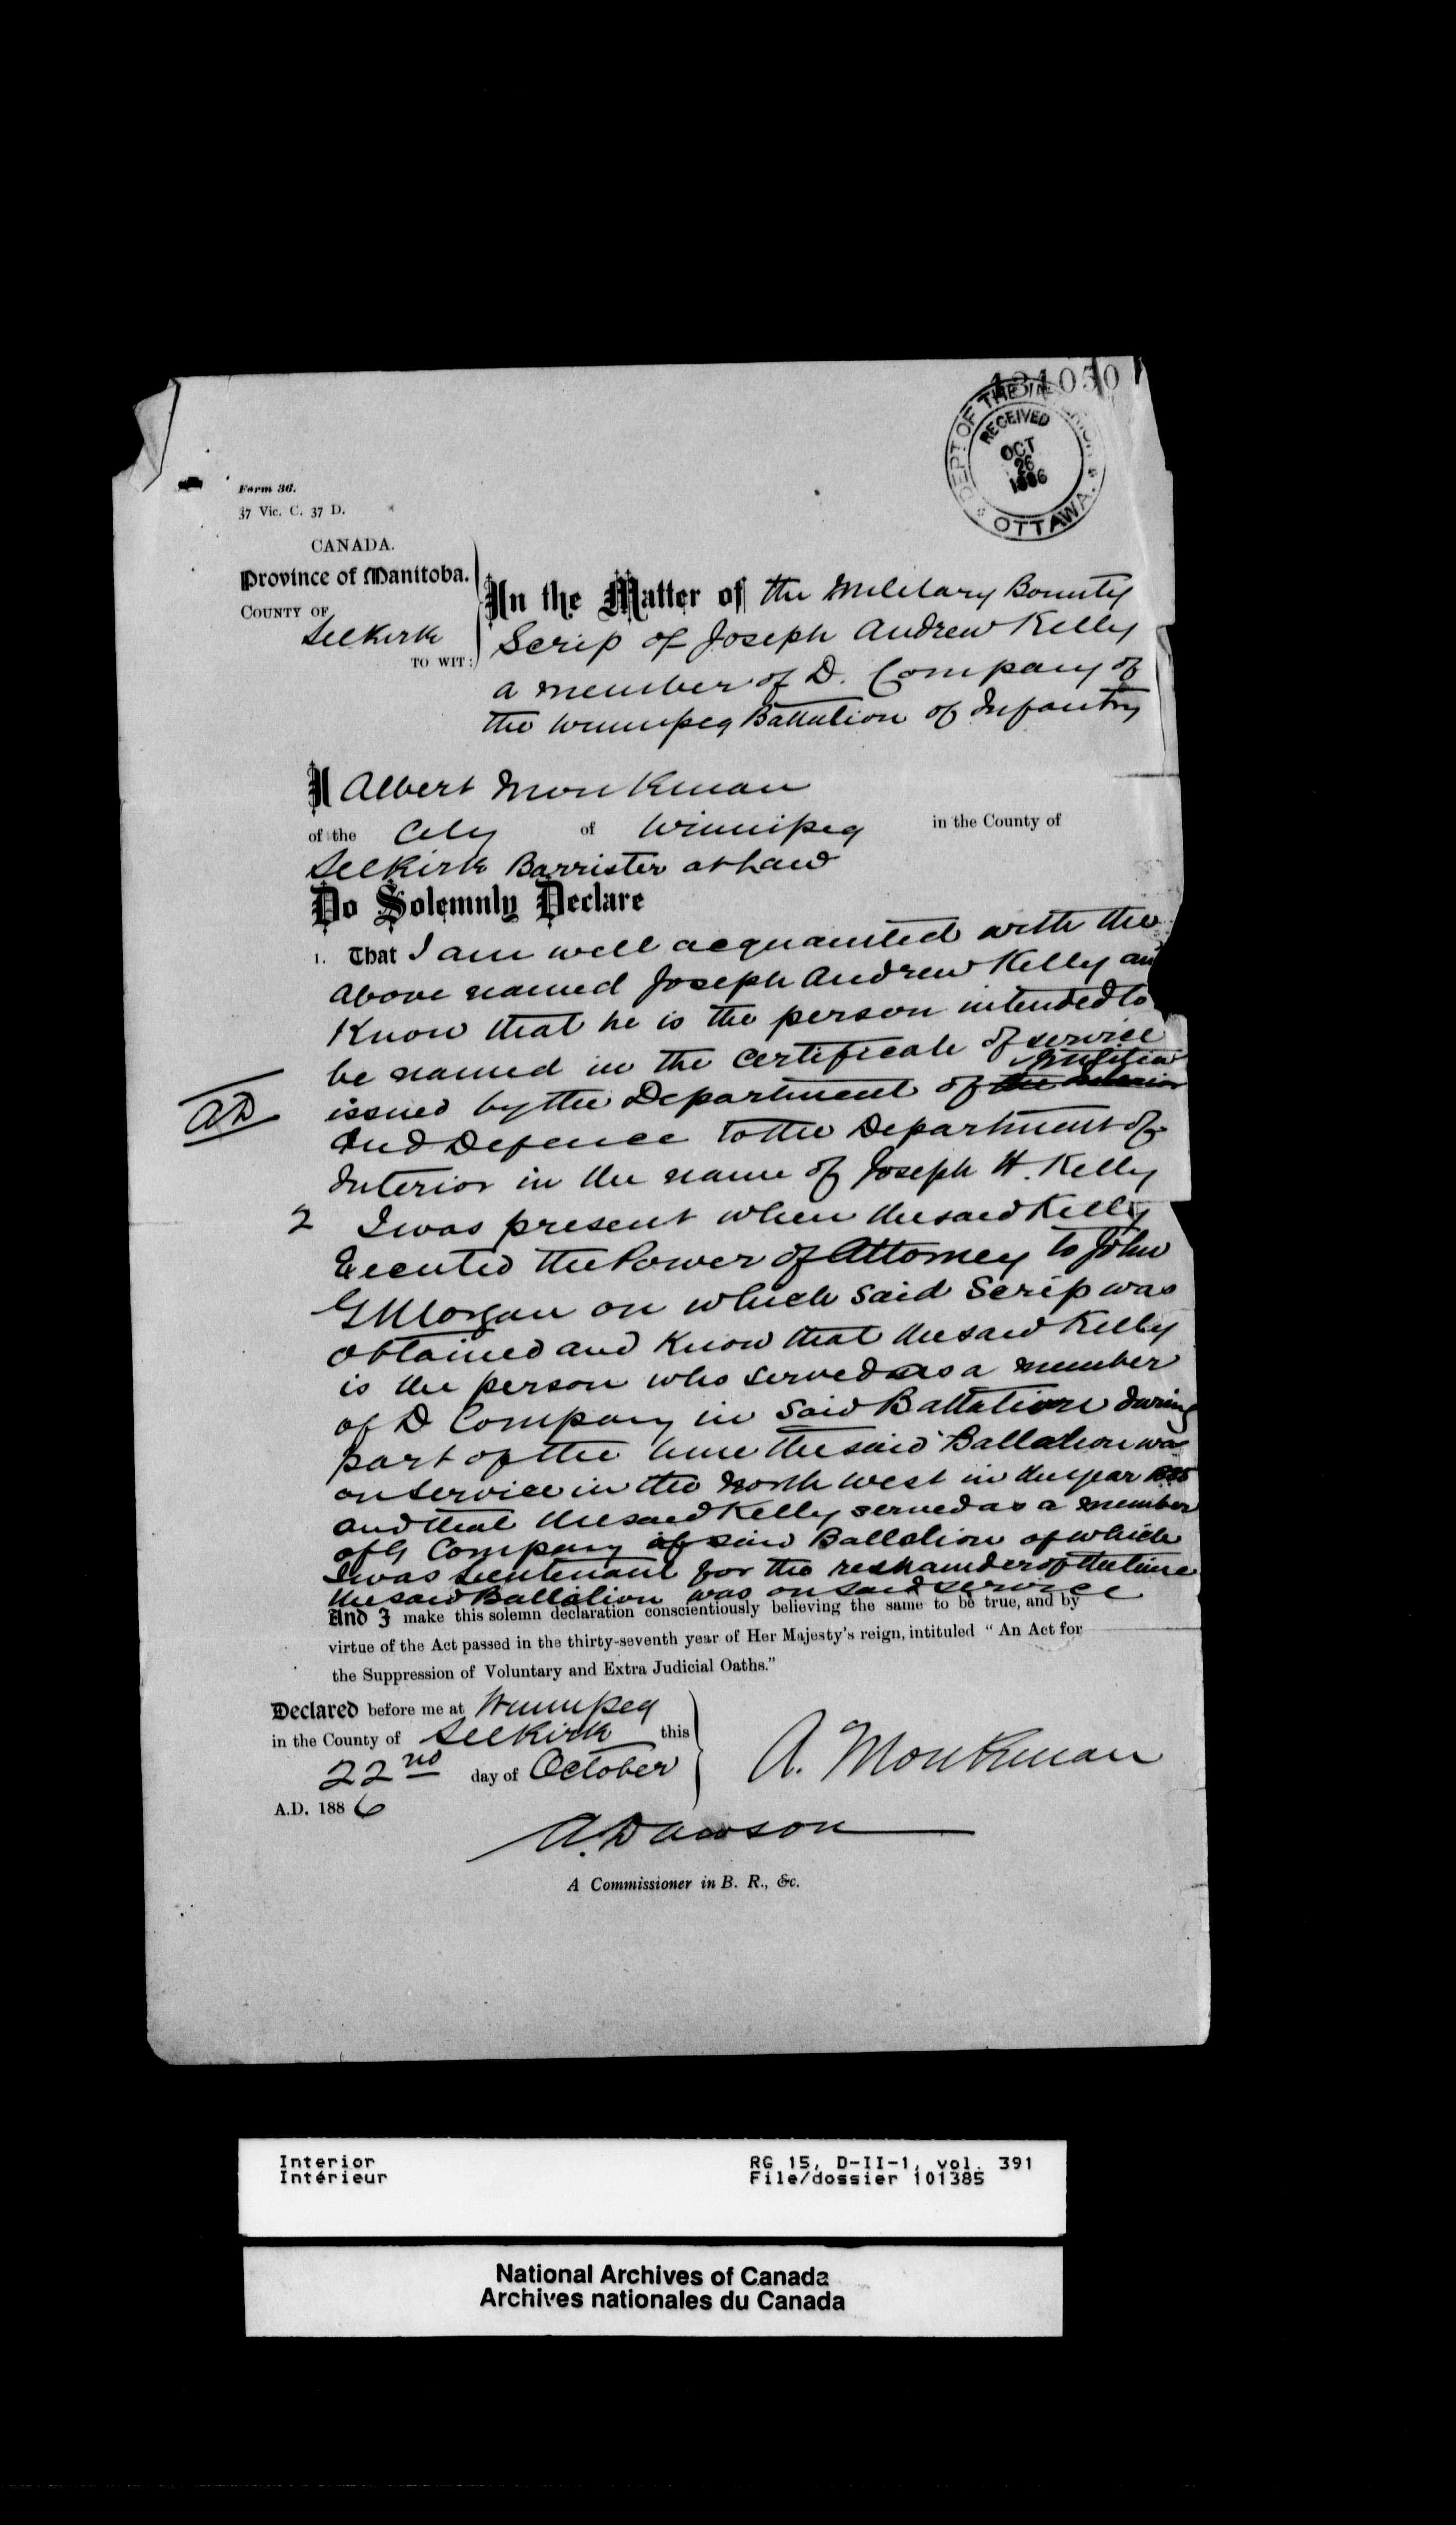 131050
DEPT OF THE INTERIOR
RECEIVED
OCT
26
1886
OTTAWA.
Form 36.
37 Vic. C. 37 D.
CANADA.
Province of Manitoba.
COUNTY OF
Selkirk
TO WIT:
In the Matter of the Military Bounty
Scrip of Joseph Andrew Kelly
a member of D. Company of
the Winnipeg Battalion of Infantry
I Albert Monkman
of the City of Winnipeg in the County of
Selkirk Barrister at Law
Do Solemnly Declare
1. That I am well acquainted with the
above named Joseph Andrew Kelly an
Know that he is the person intended to
be named in the Certificate of service
Militia
AD issued by the Department of the Interior
and Defence to the Department of
Interior in the name of Joseph H. Kelly
2 I was present when the said Kelly
Executed the Power of Attorney to John
G Morgan on which said Scrip was
obtained and Know that the said Kelly
is the person who served as a member
of D Company in said Battalion during
part of the time the said Battalion was
on service in the North West in the year 1885
and that the said Kelly served as a member
of G Company of said Battalion of which
I was Lieutenant for the remainder of the time
the said Battalion was on said service
And I make this solemn declaration conscientiously believing the same to be true, and by
virtue of the Act passed in the thirty-seventh year of Her Majesty's reign, intituled "An Act for
the Suppression of Voluntary and Extra Judicial Oaths."
Declared before me at Winnipeg
in the County of Selkirk this
22nd day of October
A.D. 1886
A. Monkman
A. Dawson
A Commissioner in B. R., &c.
Interior
Intérieur
RG 15, D-II-1, vol. 391
File/dossier 101385
National Archives of Canada
Archives nationales du Canada